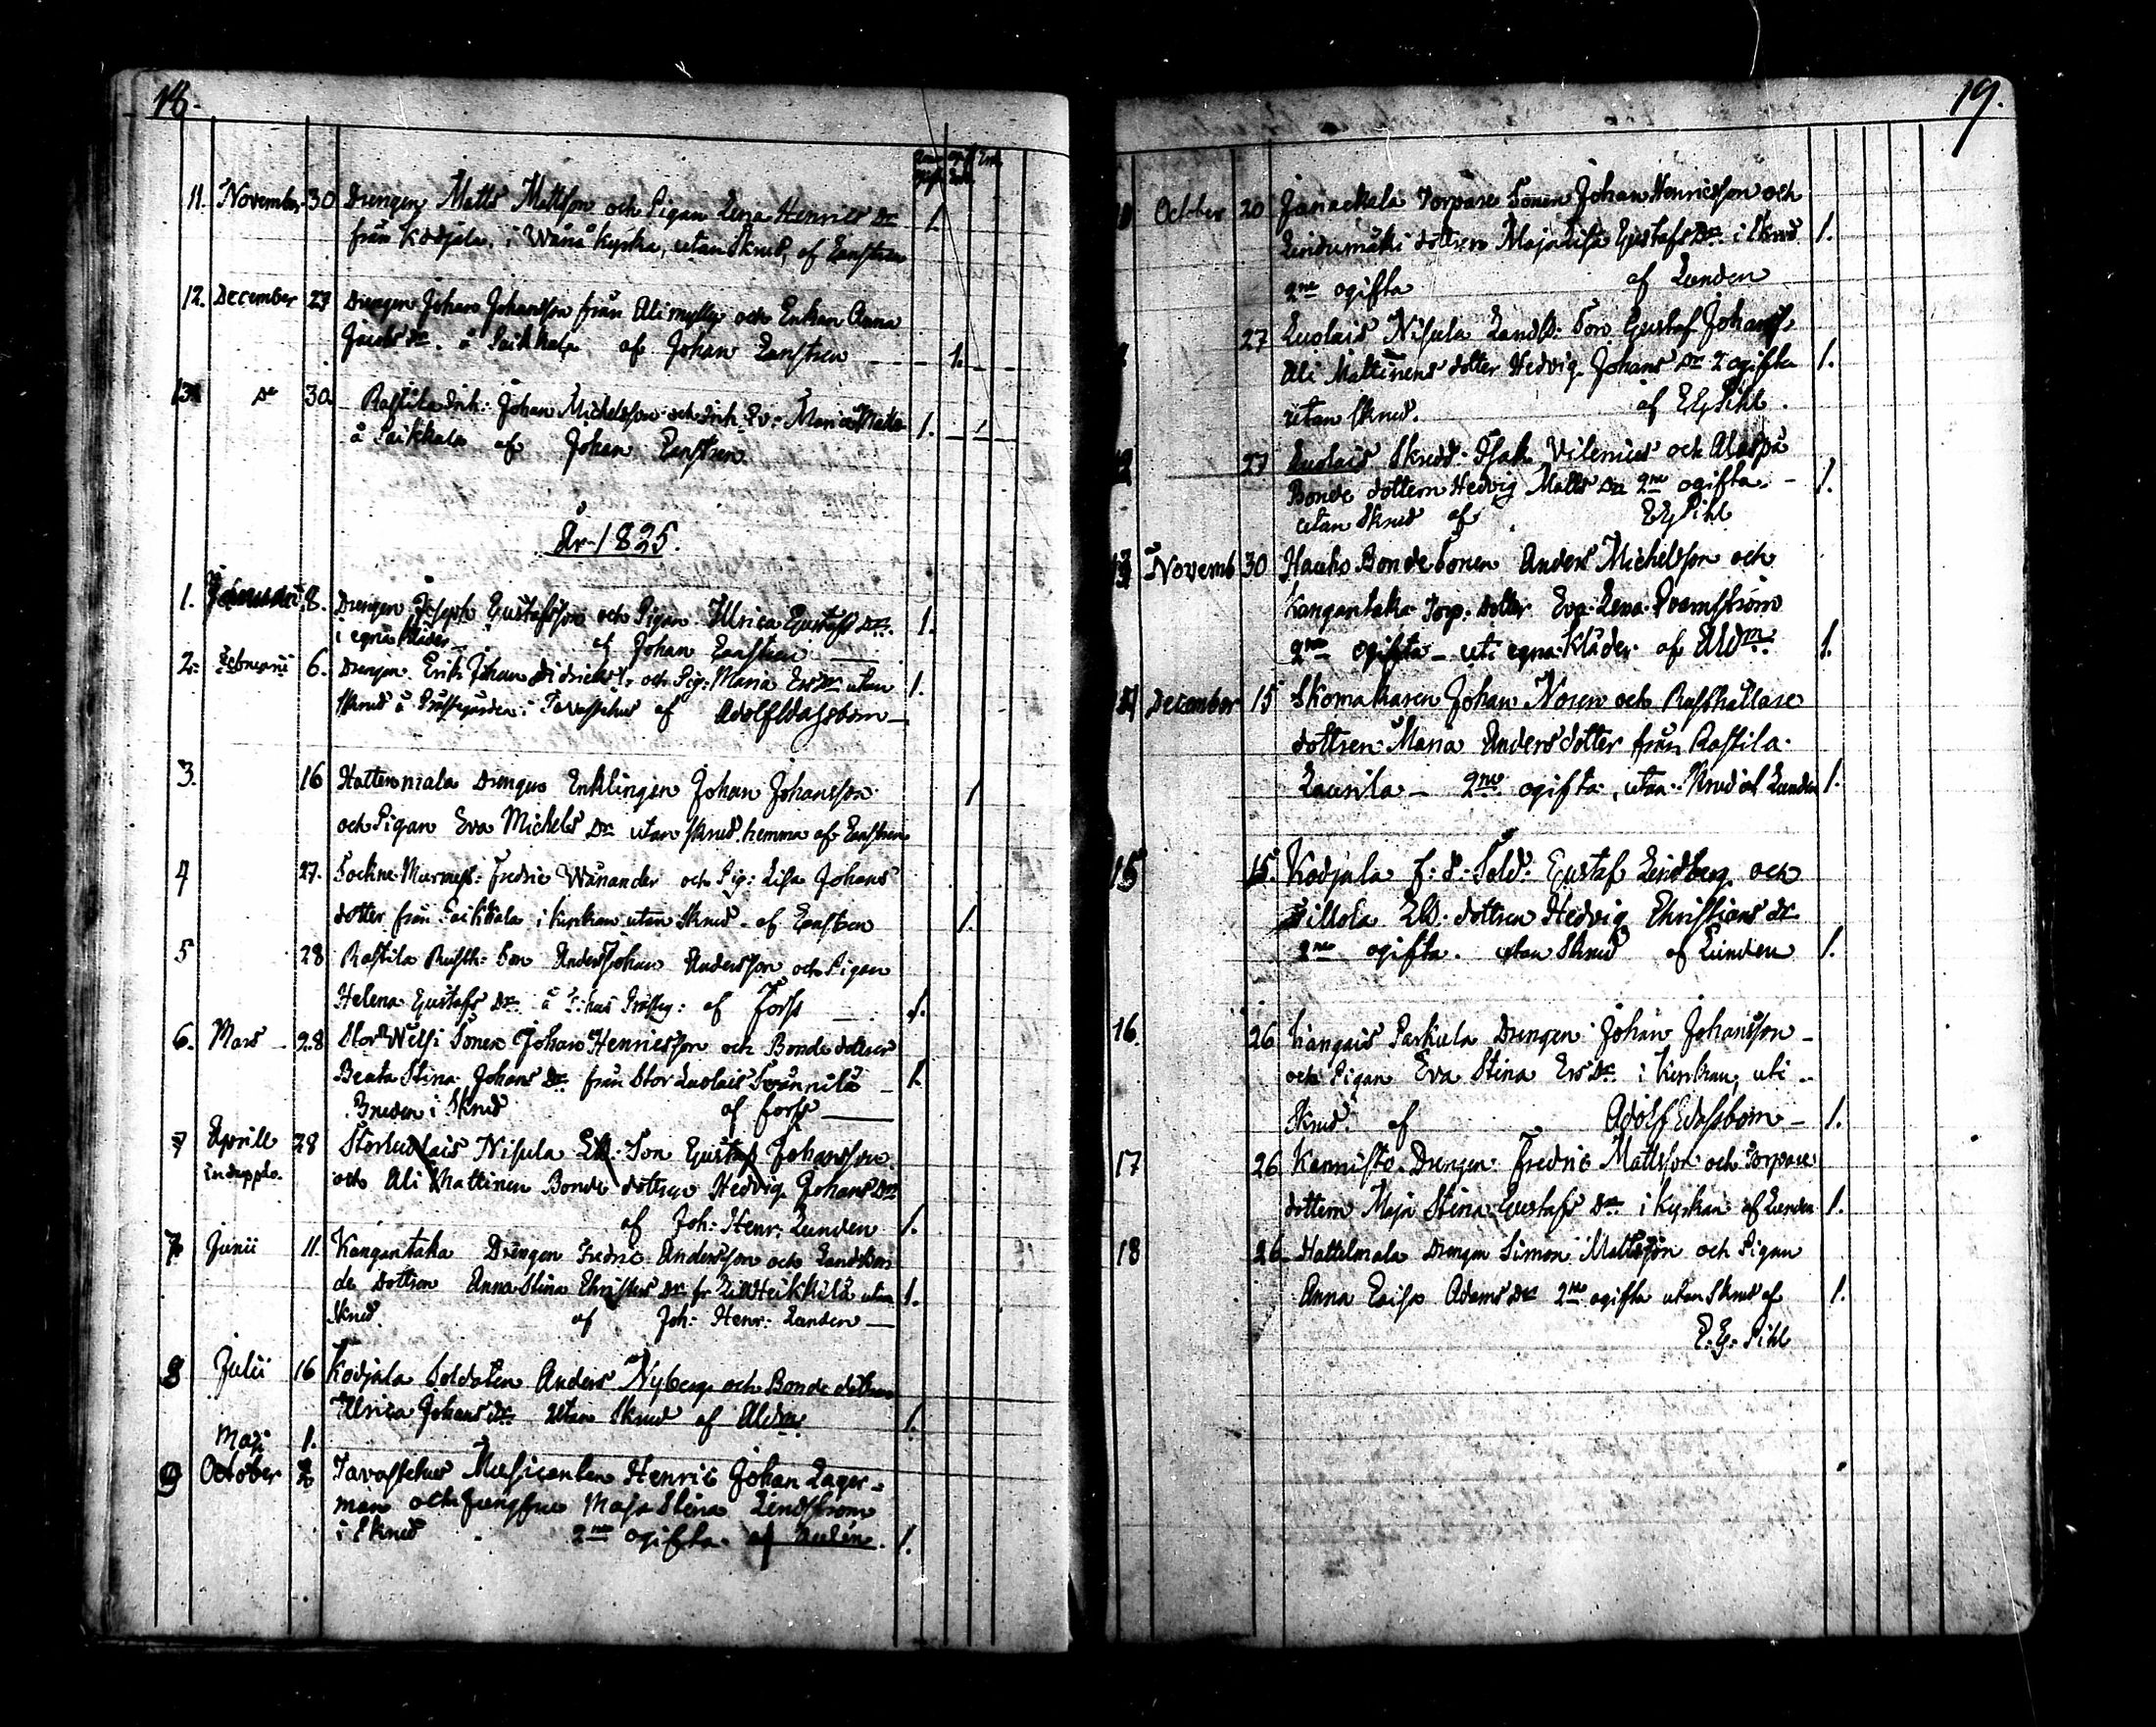 18.
11. November 30 Drengen Matts Mattsson och Pigan Lena Henrics Dr 1.
från Kodjala, i Wånå Kyrka, utan Skrud, af
12. December 27 Drengen Johan Johansson från Alimylly och Enkan Anna
Jacobs Dr. å Paikkala af Johan 1.
13. Do 30. Rastila Johan Michelsson och Maria 1.
å Paikkala af Johan
År 1825.
1. Januarii 8. Drengen Joseph Gustafsson och Pigan Ulrica Gustafs Dr. 1.
i egna kläder af Johan
2. Februarii 6. Drengen Erik Johan och Pig: Maria Ers Dr utan 1.
Skrud å Prästgården i Tavastehus af Adolf
3. 16 Drengen Enklingen Johan Johansson 1
och Pigan Eva Michels Dr utan skrud hemma af
4 27. Sockne Fredric Wånander och Pig: Lisa Johans
dotter från Paikkala i Kyrkan utan Skrud af 1.
5 28 Rastila Rusth: Son Anders Johan Andersson och Pigan
Helena Gustafs Dr. å af Forss 1.
6. Mars 28 Stor Welfi Sonen Johan Henricsson och Bonde dottren
Beata Stina Johans Dr från Stor Luolais 1.
Bruden i Skrud af Forss
7 Aprill 28 Storluolais Nisula Ld. Son Gustaf Johansson
och Ali Mattinen Bonde dottren Hedvig Johans Dr
af Joh: Henr: Lunden 1.
7 Junii 11. Kangantaka Drengen Fredric Andersson och Landbon
de dottren Anna Stina Christers Dr fr Heikkilä utan 1.
Skrud. af Joh: Henr: Lunden
8 Julii 16 Kodjala Soldaten Anders Nyberg och Bonde dottren
Ulrica Johans Dr. utan Skrud af Aldm. 1.
Maji 1.
9 October 2 Tavastehus Musicanten Henric Johan Lager-
man och Jungfru Maja Stina Lindström
i Skrud 2ne ogifta. af Lunden. 1.
19.
10 October 20 Janackala Torpare Sonen Johan Henricsson och
Lindumäki dottren Maja Lisa Gustafs Dr. i Skrud 1.
2ne ogifta af Lunden
27 Luolais Nisula Landb: Son Gustaf Johans
Ali Mattinens dotter Hedvig Johans Dr 2 ogifta 1.
utan Skrud. af EG Pihl.
12 27 Luolais Skredd: Isak Vilenius och Alaspä
Bonde dottern Hedvig Matts Dr 2ne ogifta. 1.
utan Skrud af EG Pihl
13 Novemb 30 Hauho Bonde Sonen Anders Michelsson och
Kangantaka Torp. dotter Eva Lena
2ne ogifta uti egna kläder af Aldm. 1.
14 December 15 Skomakaren Johan Noren och Rusthållare
dottren Maria Anders dotter från Rastila
Laurila 2ne ogifta, utan Skrud af Lunden 1.
15 15. Kodjala f: d: Sold: Gustaf Lindberg och
Ld. dottren Hedvig Christians dr.
2ne ogifta. utan Skrud af Lunden 1.
16. 26 Kangais Parkula Drengen Johan Johansson
och Pigan Eva Stina Ers Dr. i Kyrkan, uti
Skrud. af Adolf 1.
17 26 Kannisto Drengen Fredric Mattsson och Torpare
dottern Maja Stina Gustafs Dr i Kyrkan af Lunden 1.
18 26 Hattelmala Drengen Simon Mattsson och Pigan
Anna Caisa Adams Dr 2ne ogifta utan Skrud af 1.
E. G. Pihl